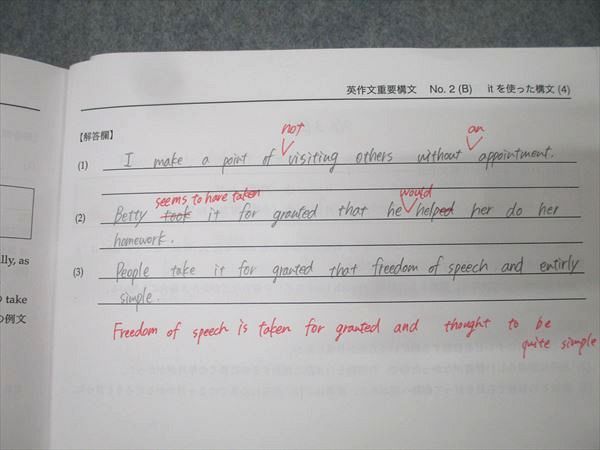 英作文重要構文 No. 2 (B) it を使った構文 (4)
【解答欄】
not an
(1) I make a point of visiting others without appointment.
seems to have taken would
(2) Betty took it for granted that he helped her do her
homework.
(3) People take it for granted that freedom of speech and entirly
simple.
Freedom of speech is taken for granted and thought to be
quite simple
ally, as
take
の例文